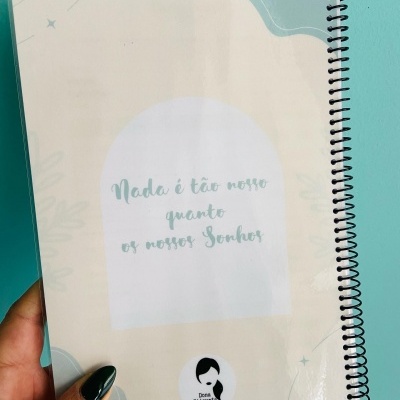 Nada é tão nosso
quanto
os nossos Sonhos
Dona